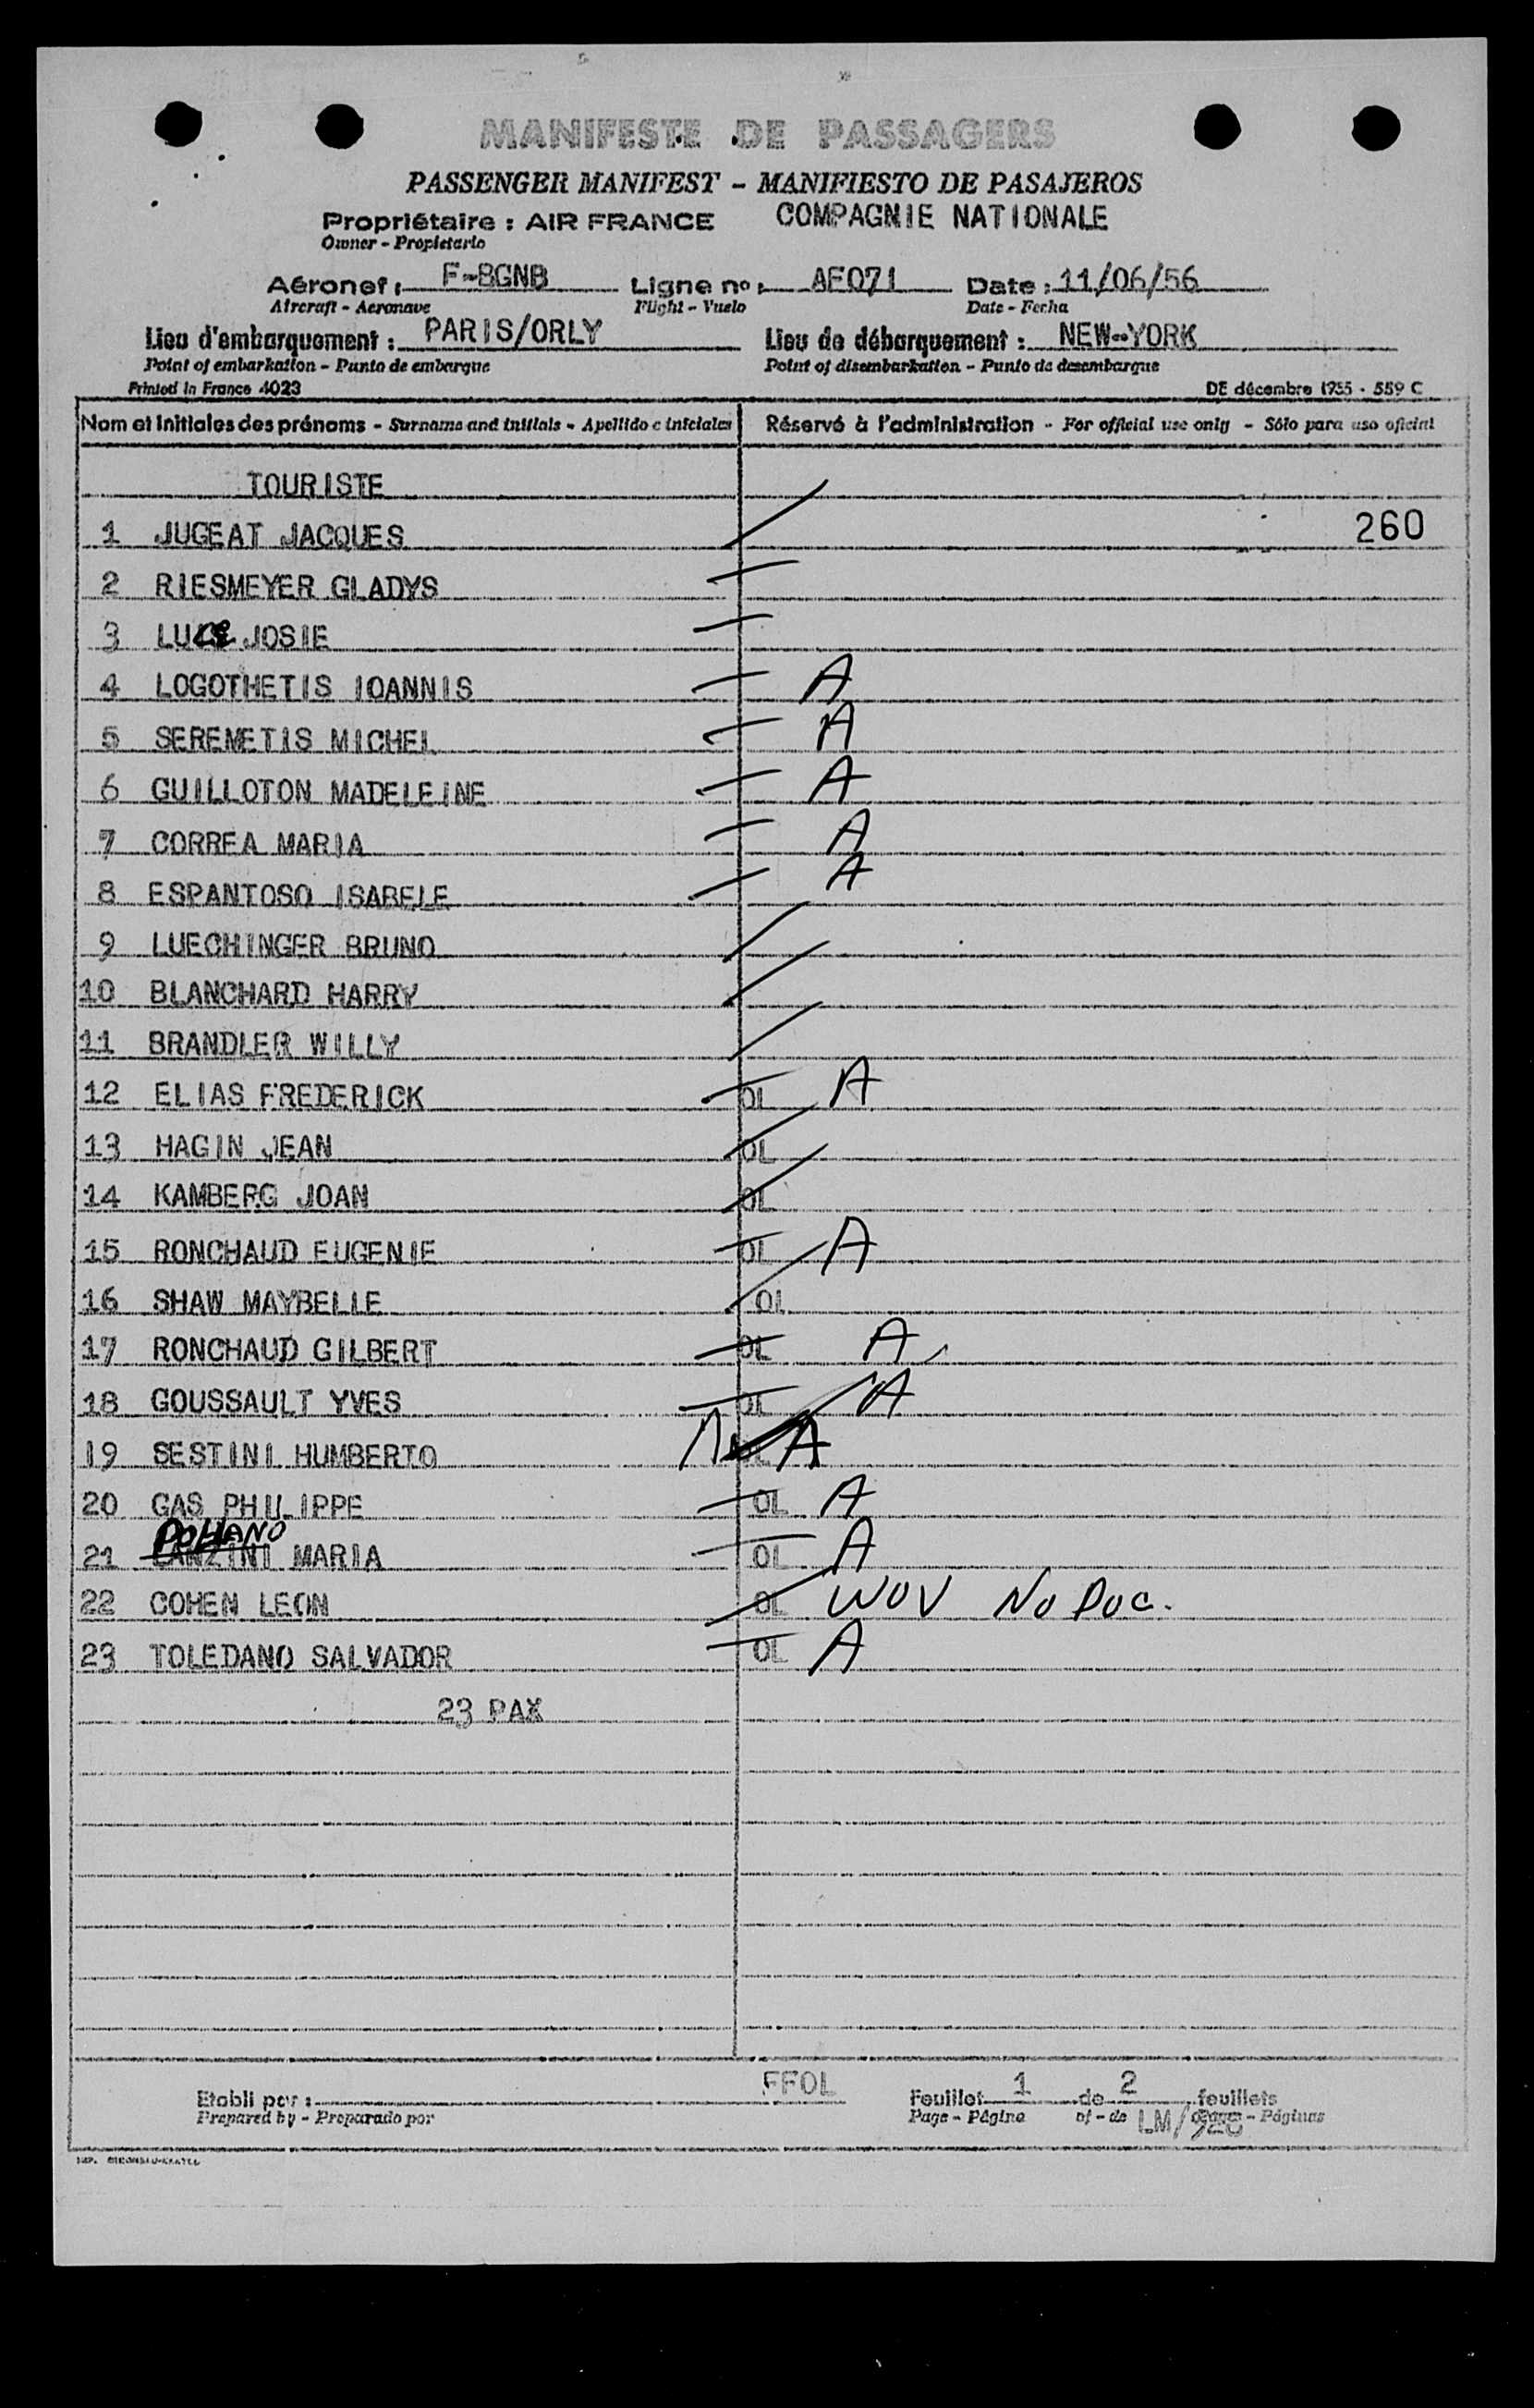 MANIFESTE DE PASSAGERS
PASSENGER MANIFEST - MANIFIESTO DE PASAJEROS
Propriétaire : AIR FRANCE COMPAGNIE NATIONALE
Owner - Propietario
Aéronef : F-BGNB Ligne no : AF071 Date : 11/06/56
Aircraft - Aeronave Flight - Vuelo Date - Fecha
Lieu d'embarquement : PARIS/ORLY Lieu de débarquement : NEW-YORK
Point of embarkation - Punto de embarque Point of disembarkation - Punto de desembarque
Printed in France 4023 DE décembre 1955 - 559 C
Nom et initiales des prénoms - Surname and initials - Apellido e iniciales Réservé à l'administration - For official use only - Sólo para uso oficial
TOURISTE
1 JUGEAT JACQUES 260
2 RIESMEYER GLADYS
3 LUCE JOSIE
4 LOGOTHETIS IOANNIS A
5 SEREMETIS MICHEL A
6 GUILLOTON MADELEINE A
7 CORREA MARIA A
8 ESPANTOSO ISABELE A
9 LUECHINGER BRUNO
10 BLANCHARD HARRY
11 BRANDLER WILLY
12 ELIAS FREDERICK OL A
13 HAGIN JEAN OL
14 KAMBERG JOAN OL
15 RONCHAUD EUGENIE OL A
16 SHAW MAYBELLE OL
17 RONCHAUD GILBERT OL A
18 GOUSSAULT YVES OL A
19 SESTINI HUMBERTO OL A
20 GAS PHILIPPE OL A
POHANO
21 LANZINI MARIA OL A
22 COHEN LEON OL WOV No Doc.
23 TOLEDANO SALVADOR OL A
23 PAX
Etabli par : FFOL Feuillet 1 de 2 feuillets
Prepared by - Preparado por Page - Página of - de LM/ Pages - Páginas